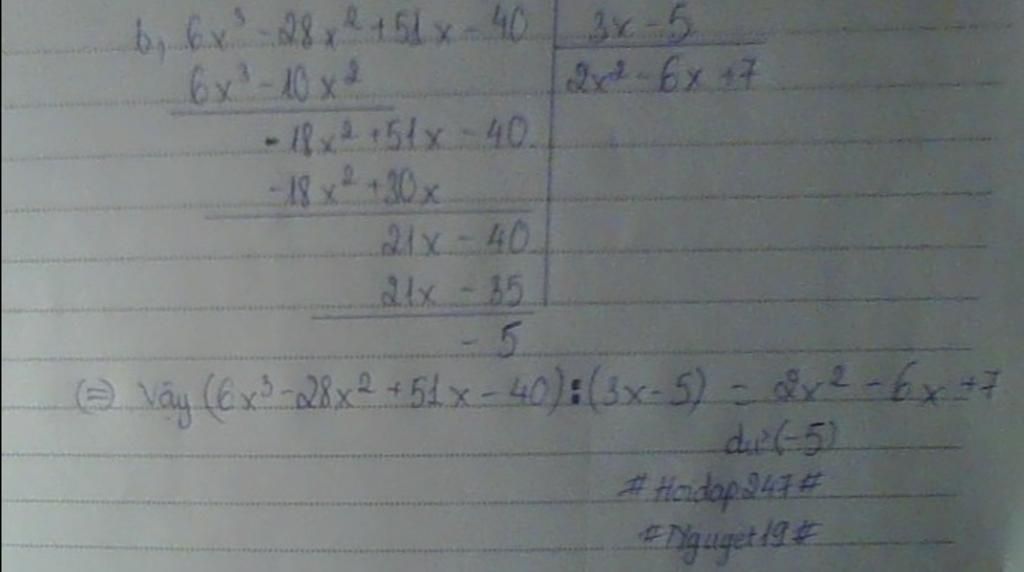 b, 6x³ - 28x² + 51x - 40 | 3x - 5
6x³ - 10x² | 2x² - 6x + 7
- 18x² + 51x - 40
- 18x² + 30x
21x - 40
21x - 35
- 5
(=) Vậy (6x³ - 28x² + 51x - 40) : (3x - 5) = 2x² - 6x + 7
dư (-5)
# Hoidap247 #
# Nguyet19 #